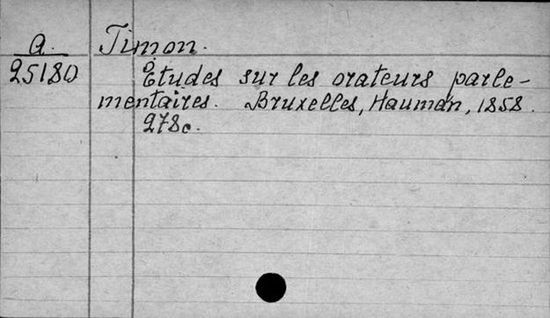 A. Timon.
25180 Études sur les orateurs parle-
mentaires. Bruxelles, Hauman, 1858.
278c.